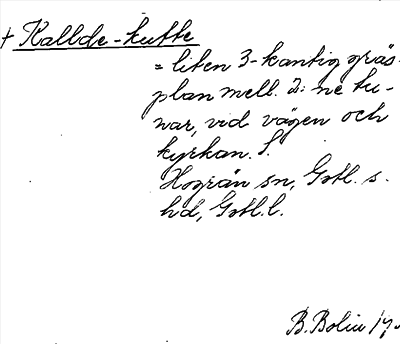 + Kallde-kutte
= liten 3-kantig gräs-
plan mell. 2: ne tu-
nar, vid vägen och
kyrkan. S.
Hogrän sn, Gotl. s.
hd, Gotl. l.
B. Bolin